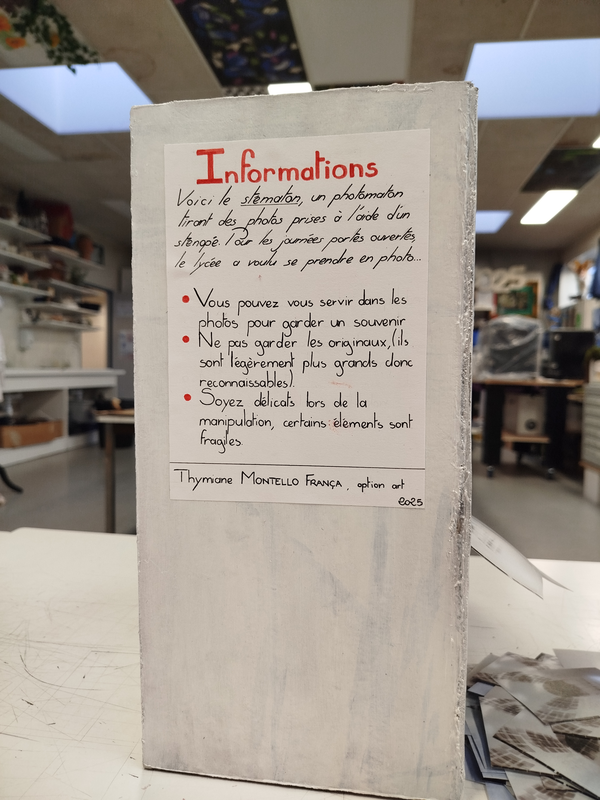 Informations
Voici le stematon, un photomaton
tirant des photos prises à l'aide d'un
sténopé. Pour les journées portes ouvertes,
le lycée a voulu se prendre en photo...
• Vous pouvez vous servir dans les
photos pour garder un souvenir
• Ne pas garder les originaux, (ils
sont légèrement plus grands donc
reconnaissables).
• Soyez délicats lors de la
manipulation, certains éléments sont
fragiles.
Thymiane MONTELLO FRANÇA, option art
2025